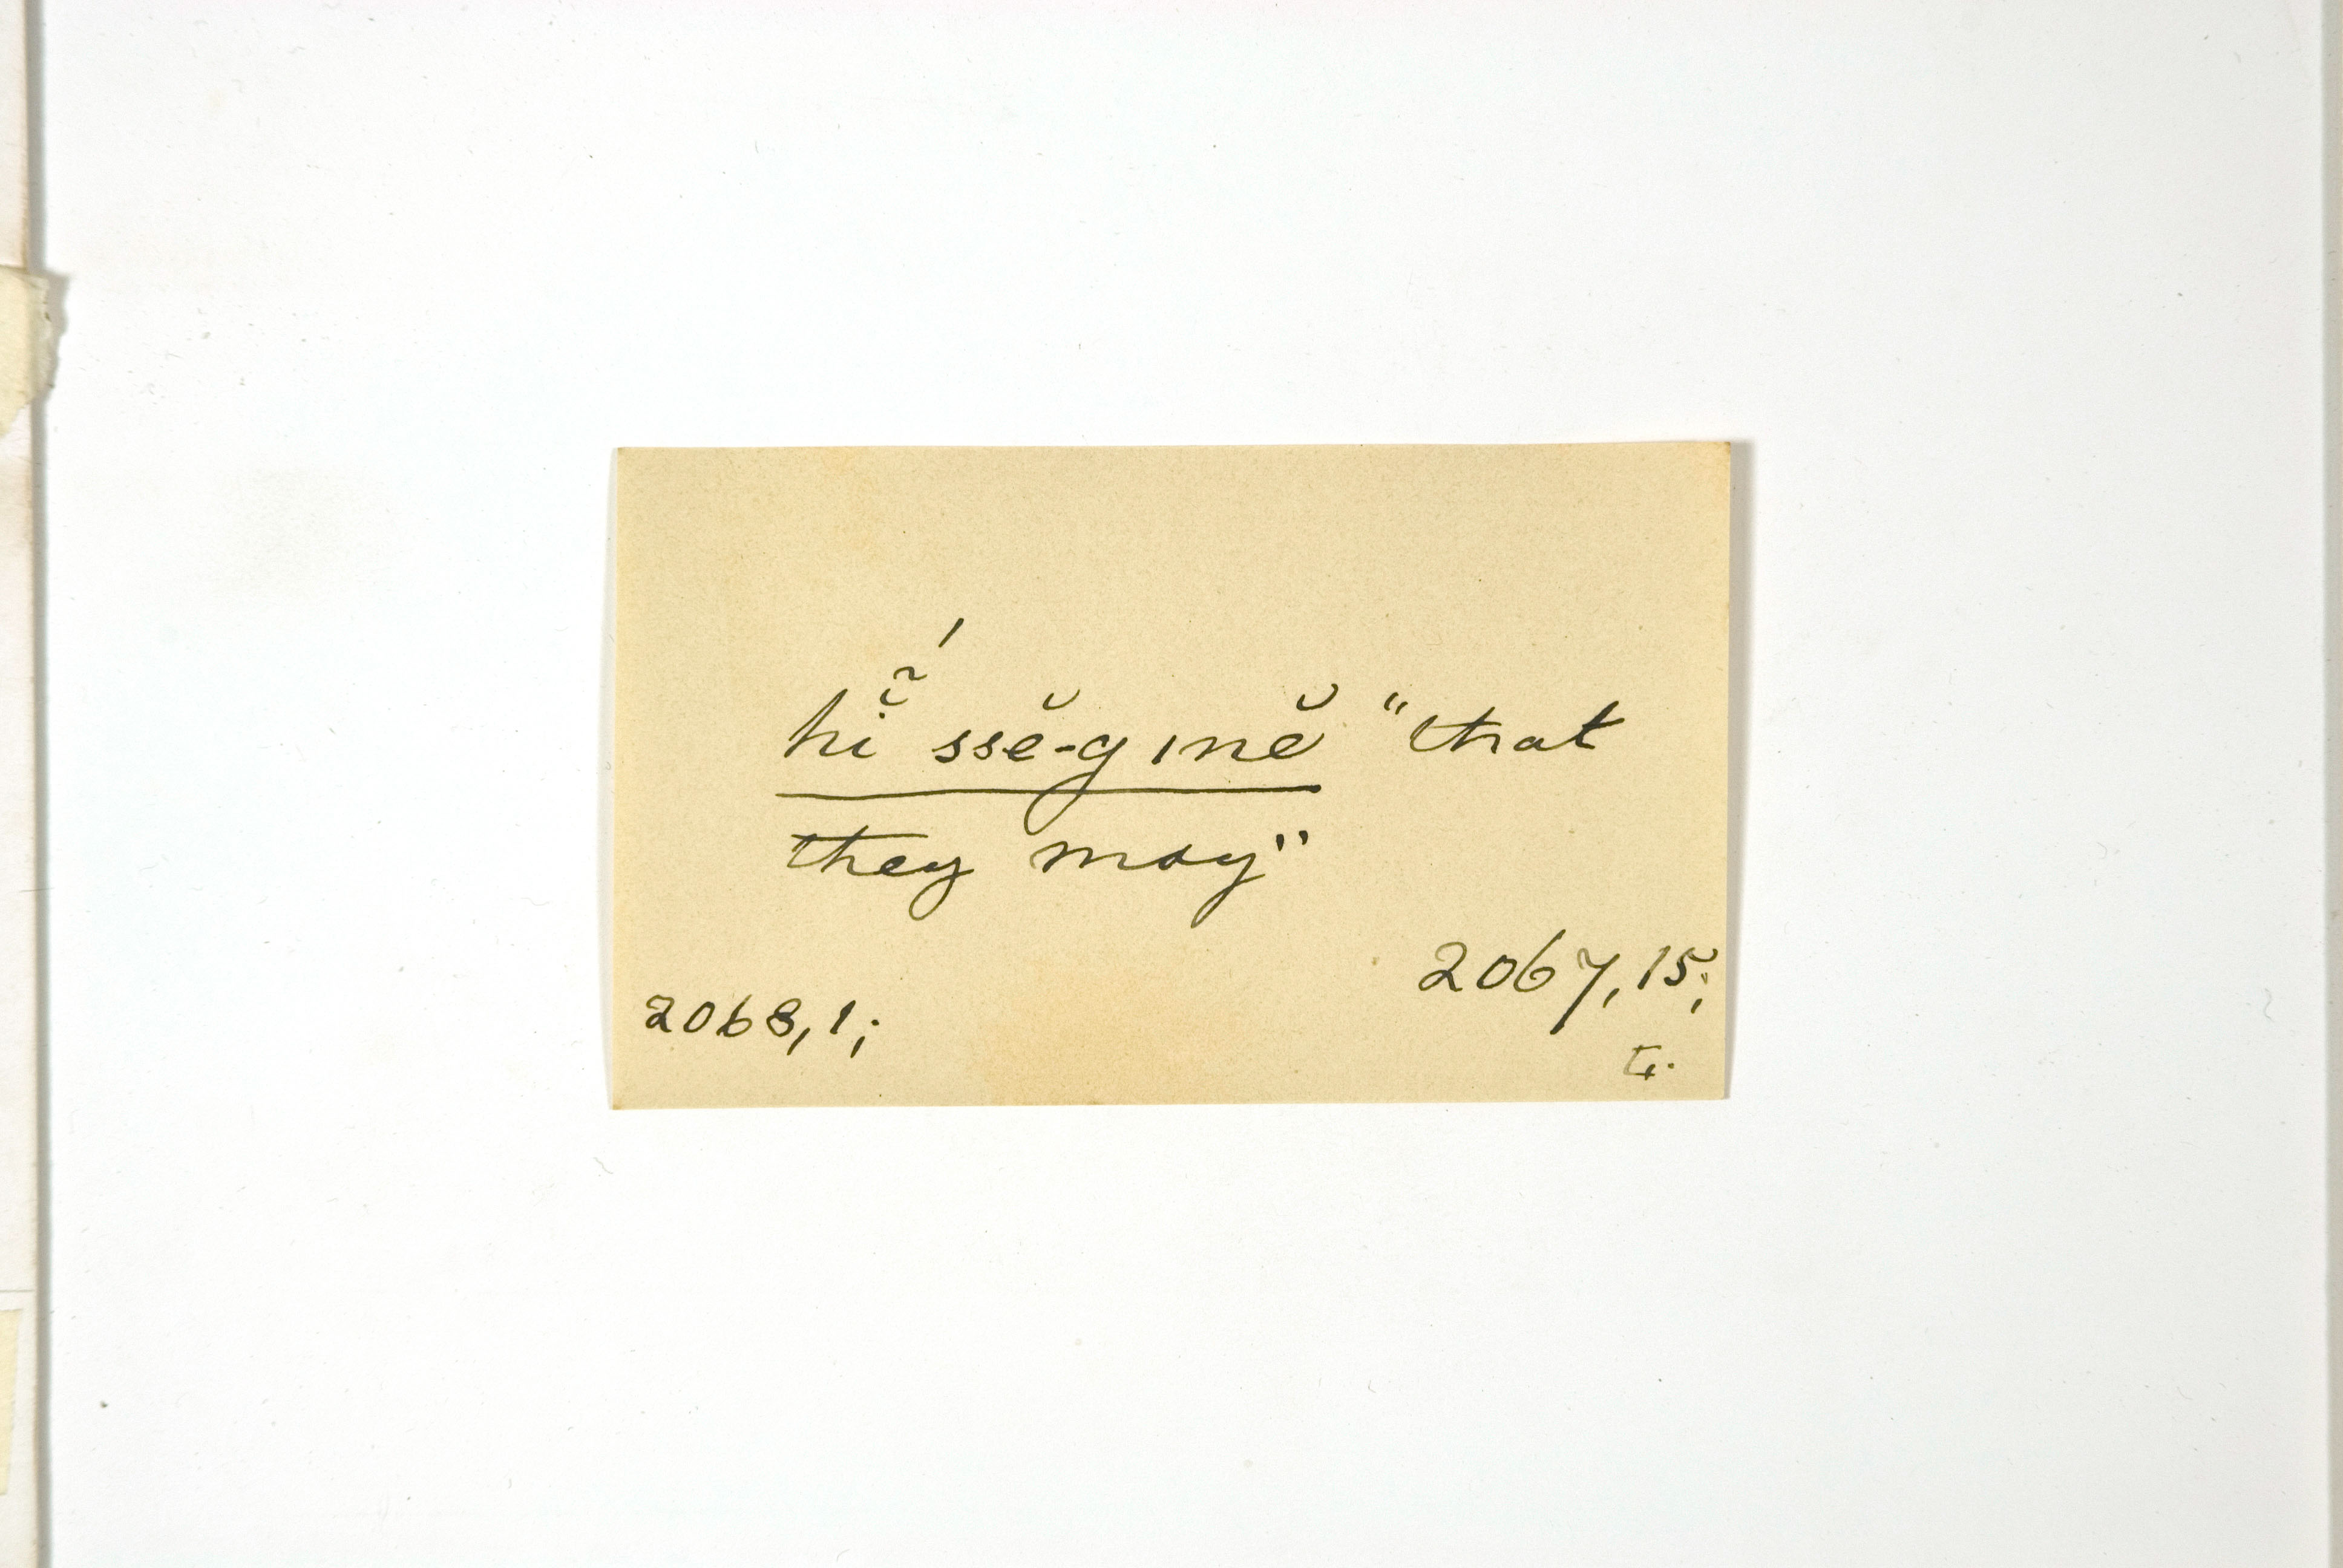 hĭ̃´ssĕ-gınĕ "that
they may"
2067,15;
2068,1;
tr.